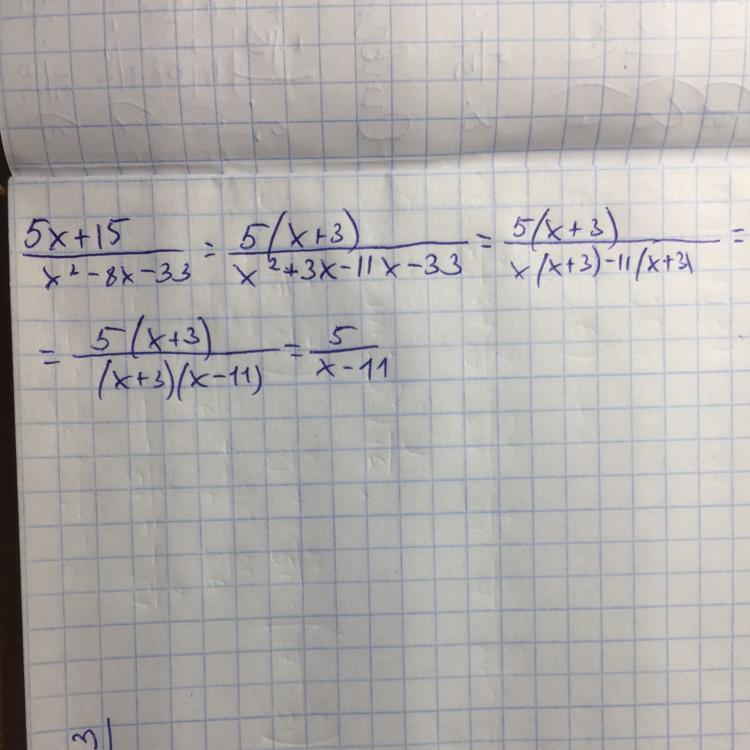 (5x+15)/(x²-8x-33) = 5(x+3)/(x²+3x-11x-33) = 5(x+3)/(x(x+3)-11(x+3) =
= 5(x+3)/((x+3)(x-11)) = 5/(x-11)